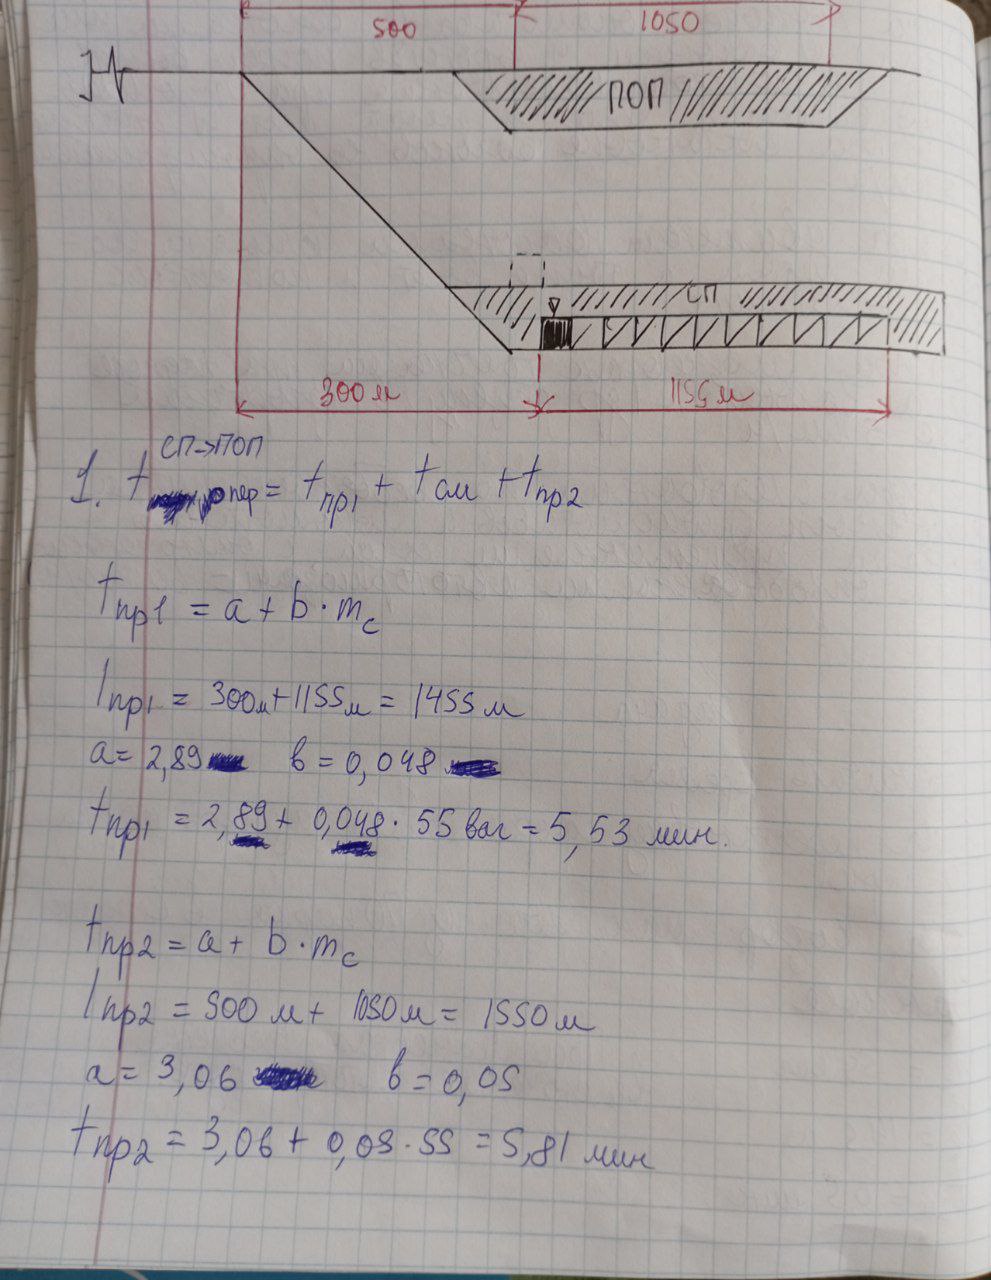 500 1050
ПОП
СП
300 м 1155 м
СП→ПОП
1. t пер = tпр1 + tсм + tпр2
tпр1 = a + b · mc
lпр1 = 300м + 1155м = 1455 м
a = 2,89 в = 0,048
tпр1 = 2,89 + 0,048 · 55 ваг = 5,53 мин.
tпр2 = a + b · mc
lпр2 = 500 м + 1050 м = 1550 м
a = 3,06 в = 0,05
tпр2 = 3,06 + 0,05 · 55 = 5,81 мин